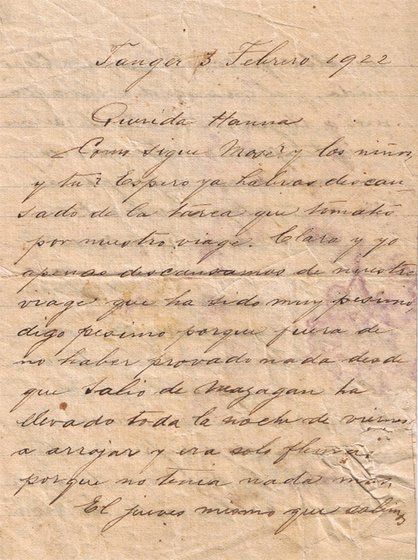 Tanger 3 Febrero 1922
Querida Hanna
Como sigue Mose? y los niños
y tu? Espero ya habras descan
sado de la tarea que tomatis
por nuestro viage. Clara y yo
apenas descansamos de nuestro
viage que ha sido muy pesimo,
digo pesimo porque fuera de
no haber provado nada desde
que salio de Mazagan ha
llevado toda la noche de viernes
a arrojar y era solo
porque no tenia nada mas
El jueves mismo que salimos